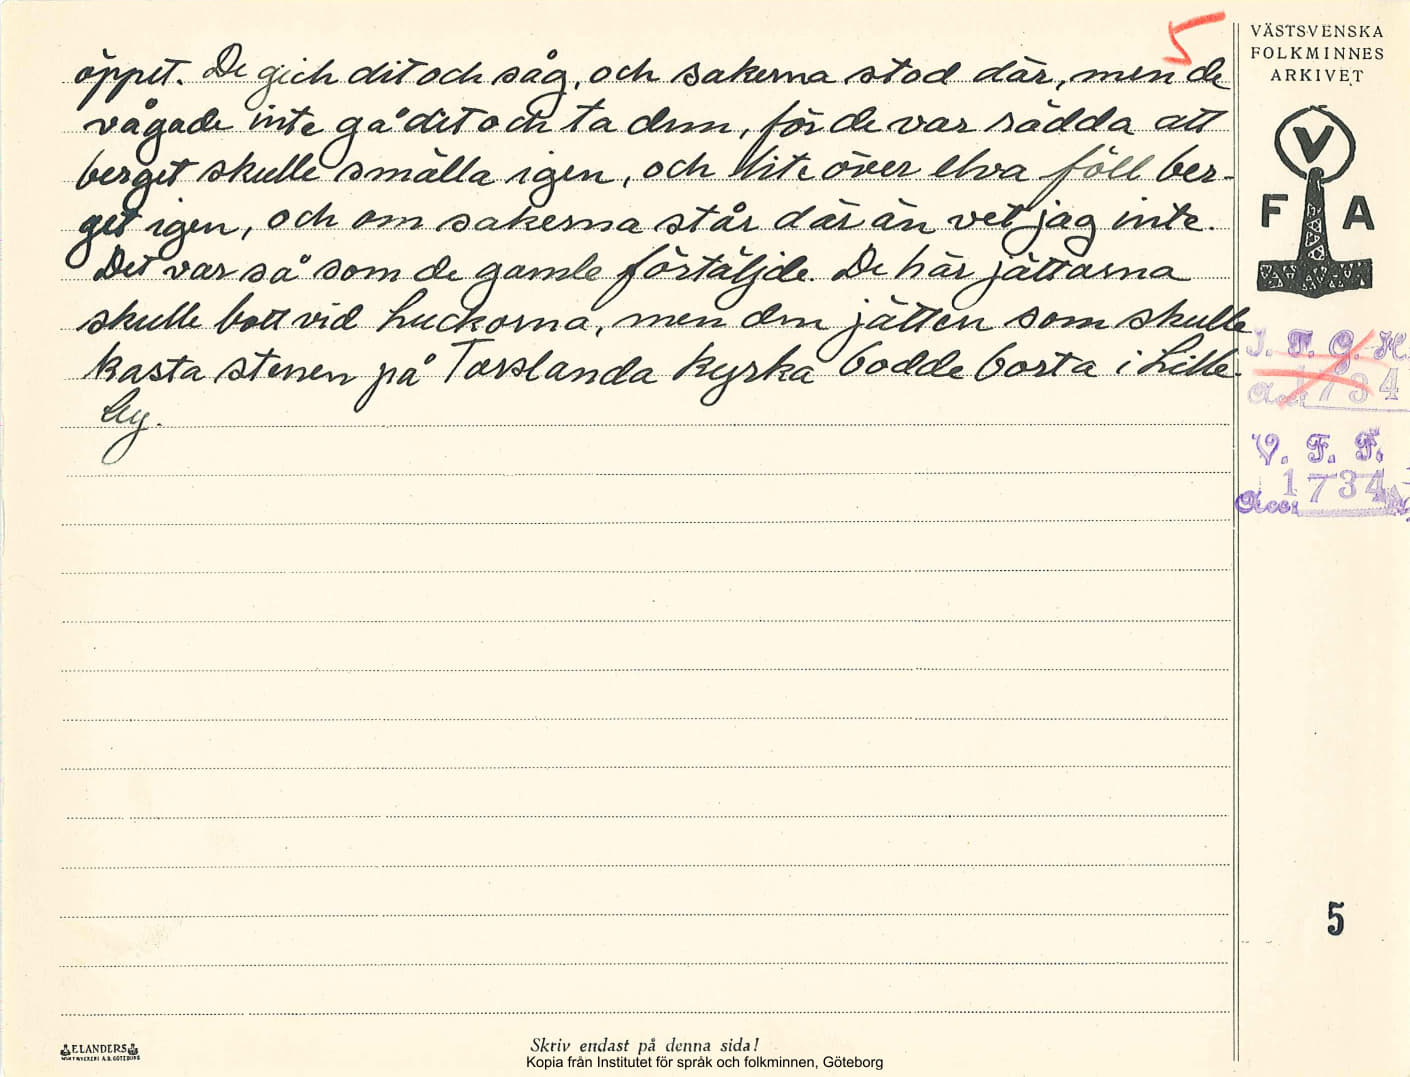 5
öppet. De gich dit och såg, och sakerna stod där, men de
vågade inte gå dit och ta dem, för de var rädda att
berget skulle smälla igen, och lite över elva föll ber-
get igen, och om sakerna står där än vet jag inte.
Det var så som de gamle förtäljde. De här jättarna
skulle bott vid Luckorna, men den jätten som skulle
kasta stenen på Torslanda kyrka bodde borta i Lille-
by.
VÄSTSVENSKA
FOLKMINNES
ARKIVET
V
F A
I. F. G. H.
Acc: 1734
V. F. F.
Acc: 1734
5
ELANDERS
Skriv endast på denna sida!
Kopia från Institutet för språk och folkminnen, Göteborg